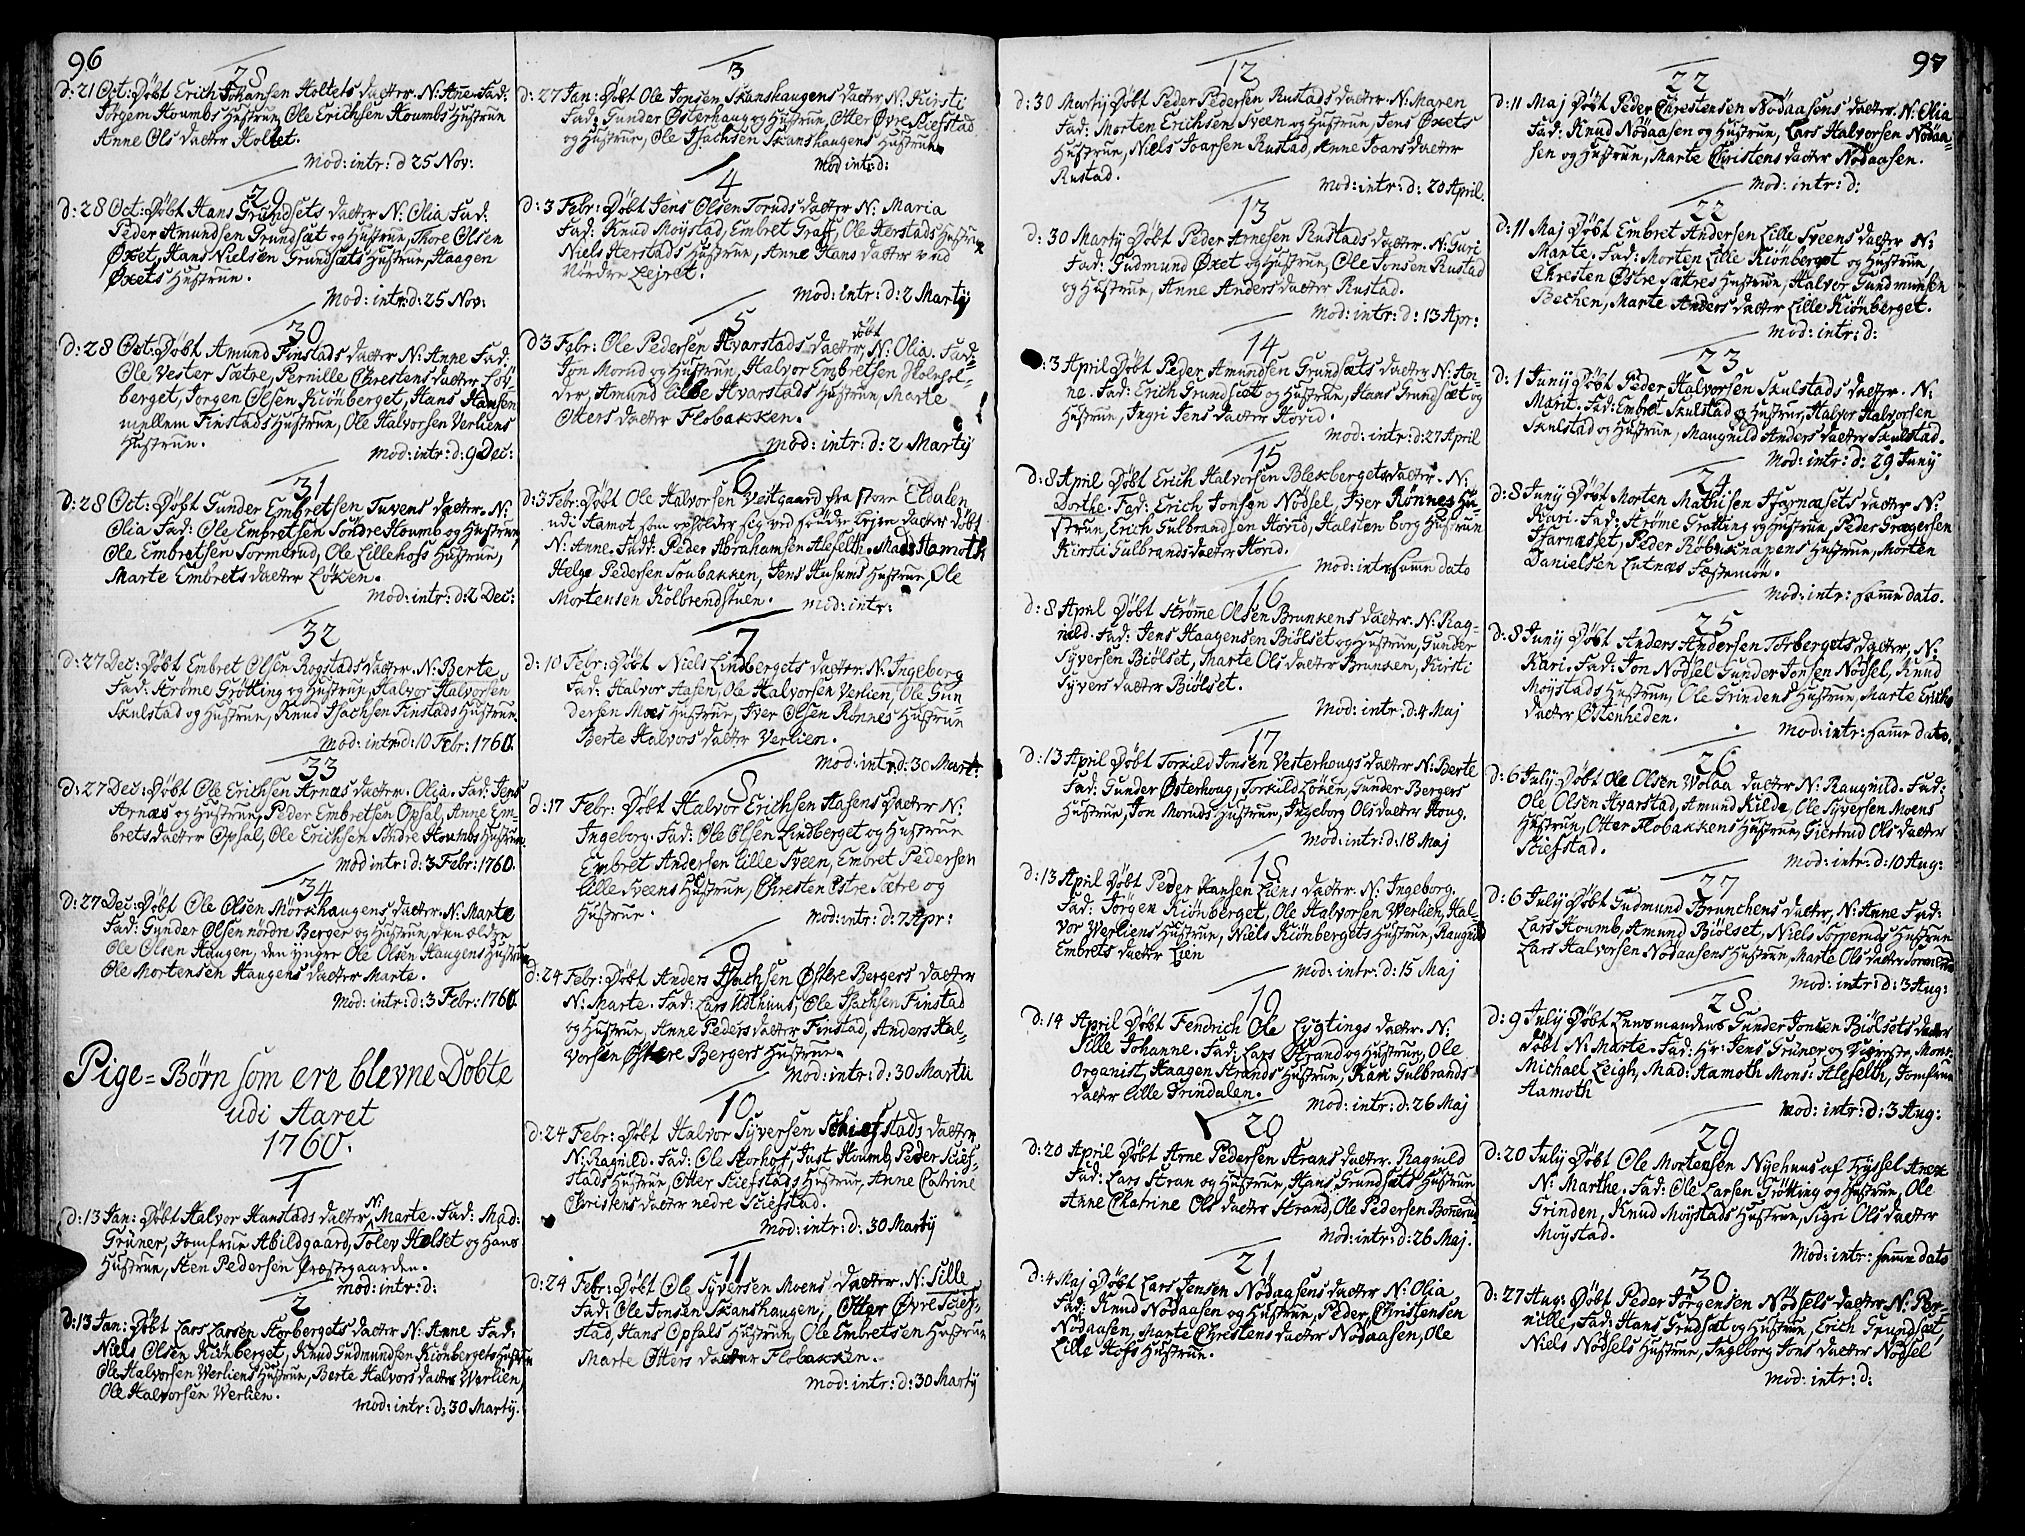 96
28
d: 21 Oct: Døbt Erich Johansen Holtets datter N: Anne Fad:
Jørgem Houmbs Hustrue Ole Erichsen Houmbs Hustrue
Anne Ols datter Holtet.
Mod: intr: d 25 Nov:
29
d: 28 Oct: Døbt Hans Grundsets datter N: Olia Fad:
Peder Amundsen Grundsæt og Hustrue, Thore Olsen
Øxet, Hans Nielsen Grundsæts Hustrue, Haagen
Øxets Hustrue.
Mod: intr: d: 25 Nov:
30
d: 28 Oct: Døbt Amund Finstads datter N: Anne Fad:
Ole Vester Sætre, Pernille Chrestens datter Løv-
berget, Jørgen Olsen Kiönberget, Hans Hansen
mellem Finstads Hustrue, Ole Halvorsen Verliens
Hustrue.
Mod: intr: d: 9 Dec:
31
d: 28 Oct: Døbt Gunder Embretsen Tuvens datter. N:
Olia Fad: Ole Embretsen Söndre Houmb og Hustrue,
Ole Embretsen Sormerud, Ole Lillehofs Hustrue,
Marte Embrets datter Löken.
Mod: intr: d: 2 Dec:
32
d: 27 Dec: Døbt Embret Olsen Rogstads datter. N: Berte,
Fad: Ströme Gröttting og Hustrue, Halvor Halvorsen
Skulstad og Hustrue, Knud Isachsen Finstads Hustrue.
Mod: intr: d: 10 Febr: 1760.
33
d: 27 Dec: Døbt Ole Erichsen Arnæs datter. Olia. Fad: Jens
Arnæs og Hustrue, Peder Embretsen Opsal, Anne Em-
brets datter Opsal, Ole Erichsen Söndre Houmbs Hustrue.
Mod intr: d: 3 Febr: 1760.
34
d: 27 Dec: Døbt Ole Olsen Mörkhaugens datter. N: Marte
Fad: Gunder Olsen nordre Berger og Hustrue, den ældre
Ole Olsen Haugen, den yngre Ole Olsen Haugens Hustrue
Ole Mortensen Haugens datter Marte.
Mod: intr: d: 3 Febr: 1760.
Pige=Børn som ere blevne Døbte
udi Aaret
1760.
1
d: 13 Jan: Døbt Halvor Hanstads datter N: Marte. Fad: Mad:
Grüner, Jomfrue Abildgaard, Tolev Helset og Hans
Hustrue, Sten Pedersen Præstgaarden.
Mod: intr: d:
2
d: 13 Jan: Døbt Lars Larsen Storbergets datter N: Anne Fad:
Niels Olsen Kiönberget, Knud Gudmundsen Kiönbergets Hustrue
Ole Halvorsen Werliens Hustrue, Berte Halvors datter Werlien,
Ole Halvorsen Werlien.
Mod: intr: d: 30 Martij.
3
d: 27 Jan: Døbt Ole Jonsen Skanshaugens datter N: Kirsti
Fad: Gunder Österhaug og Hustrue, Otter Øvre Skiefstad
og Hustrue, Ole Isachsen Skanshaugens Hustrue
Mod intr: d:
4
d: 3 Febr: Døbt Jens Olsen Toruds datter N: Maria
Fad: Knud Moystad, Embret Graff, Ole Herstads Hustrue
Niels Herstads Hustrue, Anne Hans datter ved
Nördre Lejret.
Mod: intr: d: 2 Martij
5
d 3 Febr: Ole Pedersen Hvarstads datter døbt, N: Olia. Fad:
Jon Morud og Hustrue, Halvor Embretsen Holnhol-
der, Amund lille Hvarstads Hustrue, Marte
Otters datter Flobakken.
Mod: intr: d: 2 Martij
6
d: 3 Febr: Døbt Ole Halvorsen Vestgaard fra store Eldalen
udi Hamot som opholder sig ved Lejre datter døbt
N: Anne. Fadd: Peder Abrahamsen Alefelth. Mad: Hamoth
Helge Pedersen Soubakken, Jens Husums Hustrue, Ole
Mortensen Kolbrendstuen. Mod: intr:
7
d: 10 Febr: Døbt Niels Lindbergets datter. N: Ingeberg
Fad: Halvor Aasen, Ole Halvorsen Verlien, Ole Gun-
dersen Moes Hustrue, Iver Olsen Rønnes Hustrue
Berte Halvors datter Verlien.
Mod: intr: d: 30 Mart:
8
d: 17 Febr: Døbt Halvor Erichsen Aasens datter N:
Ingeborg. Fad: Ole Olsen Lindberget og Hustrue
Embret Andersen Lille Sveen, Embret Pedersen
lille Sveens Hustrue, Chresten Østre Sætre og
Hustrue.
Mod: intr: d: 7 Apr:
9
d: 24 Febr: Døbt Anders Isachsen Østre Bergers datter
N: Marte. Fad: Lars Udthuus, Ole Isachsen Finstad
og Hustrue, Anne Peders datter Finstad, Anders Hal-
vorsen Østre Bergers Hustrue.
Mod: intr: d: 30 Martij
10
d: 24 Febr: Døbt Halvor Syversen Schiefstads datter
N: Ragnild. Fad: Ole Storhof, Just Houmb, Peder Skief-
stads Hustrue Otter Skiefstads Hustrue, Anne Catrine
Christens datter nedre Skiefstad.
Mod: intr: d: 30 Martij
11
d: 24 Febr: Døbt Ole Syversen Moens datter. N: Sille
Fad: Ole Jonsen Skanshaugen, Otter Øvre Skief-
stad, Hans Opsals Hustrue, Ole Embretsen Hustrue
Marte Otters datter Flobakken.
Mod: intr: d: 30 Martij
12
d: 30 Martij Døbt Peder Pedersen Rustads datter N: Maren
Fad: Morten Erichsen Sveen og Hustrue, Jens Øxets
Hustrue, Niels Joarsen Rustad, Anne Joars datter
Rustad.
Mod: intr: d: 20 April.
13
d: 30 Martij Døbt Peder Arnesen Rustads datter. N: Guri
Fad: Gudmund Øxet og Hustrue, Ole Jonsen Rustad
og Hustrue, Anne Anders datter Rustad.
Mod: intr: d: 13 Apr:
14
d: 3 April Døbt Peder Amundsen Grundsæts datter N: An-
ne. Fad: Erich Grundsæt og Hustrue, Hans Grundsæt og
Hustrue, Ingri Jens datter Hovid.
Mod: intr: d: 27 April
15
d: 8 April Døbt Erich Halvorsen Blekbergets datter. N:
Dorthe. Fad: Erich Jonsen Nödsel, Iver Rønnes Hu-
strue, Erich Gulbrandsen Hovid, Halsten borg Hustrue
Kirsti Gulbrands datter Hovid.
Mod: intr: samme dato
16
d: 8 April Døbt Strömme Olsen Brunkens datter. N: Rag-
nild. Fad: Jens Haagensen Biölset og Hustrue, Gunder
Syversen Biölset, Marte Ols datter Brunken, Kirsti
Syvers datter Biölset.
Mod: intr: d: 4 Maj
17
d: 13 April Døbt Torkild Jonsen Vesterhougs datter N: Berte
Fad: Gunder Østerhoug, Torkild Löken, Gunder Bergers
Hustrue, Jon Moruds Hustrue, Ingeborg Ols datter Houg.
Mod: intr: d: 18 Maj
18
d: 13 April Døbt Peder Hansen Liens datter. N: Ingeborg.
Fad: Jörgen Kiönberget, Ole Halvorsen Werlien, Hal-
vor Werliens Hustrue, Niels Kiönbergets Hustrue, Raugnild
Embrets datter Lien
Mod: intr: d: 15 Maj
19
d: 14 April Døbt Fendrich Ole Lygtings datter. N:
Sille Johanne. Fad: Lars Strand og Hustrue, Ole
Organist, Haagen Strands Hustrue, Kari Gulbrands
datter lille Grindalen.
Mod: intr: d: 26 Maj
20
d: 20 April Døbt Arne Pedersen Strans datter. Ragnild
Fad: Lars Stran og Hustrue, Hans Grundsæts Hustrue
Anne Chatrine Ols datter Strand, Ole Pedersen Bonerud
Mod: intr: d: 26 Maj.
21
d: 4 Maj Døbt Lars Jensen Nödaasens datter N: Olia
Fad: Knud Nödaasen og Hustrue, Peder Christensen
Nödaasen, Marte Chrestens datter Nödaasen, Ole
Lille Hofs Hustrue.
97
22
d: 11 Maj Døbt Peder Chrestensen Nödaasens datter. N: Olia
Fad: Knud Nödaasen og Hustrue, Lars Halvorsen Nödaa-
sen og Hustrue, Marte Christens datter Nödaasen.
Mod: intr: d:
22
d: 11 Maj Døbt Embret Andersen Lille Sveens datter N:
Marte. Fad: Morten Lille Kiönberget og Hustrue,
Chresten Østre Sættres Hustrue, Halvor Gundmunsen
Bechen, Marte Anders datter Lille Kiönberget.
Mod: intr: d:
23
d: 1 Junij Døbt Peder Halvorsen Skulstads datter. N:
Marit. Fad: Embret Skulstad og Hustrue, Halvor Halvorsen
Skulstad og Hustrue, Maugnild Anders datter Skulstad.
Mod: intr: d: 29 Junij
24
d: 8 Junij Døbt Morten Mathisen Starnæsets datter N:
Kari. Fad: Ströme Grötting og Hustrue, Peder Grægersen
Starnæset, Peder Röbæksnapens Hustrue, Morten
Danielsen Lutnæs Fæstemöe.
Mod: intr: samme dato.
25
d: 8 Junij Døbt Anders Andersen Torbergets datter, N:
Kari. Fad: Jon Nödsel Gunder Jonsen Nödsel, Knud
Moystads Hustrue, Ole Grindens Hustrue, Marte Erichs
datter Ostenheden.
Mod: intr: samme dato.
26
d: 6 July Døbt Ole Olsen Wolaa datter N: Raugnild. Fad:
Ole Olsen Hvarstad, Amund Kilde, Ole Syversen Moens
Hustrue, Otter Flobakkens Hustrue, Giertrud Ols datter
Skiefstad.
Mod: intr: d: 10 Aug:
27
d: 6 July Døbt Gudmund Brunchens datter, N: Anne Fad:
Lars Houmb, Amund Biölset, Niels Torperuds Hustrue
Lars Halvorsen Nödaasens Hustrue, Marte Ols datter
Mod: intr: d: 3 Aug:
28
d: 9 July Døbt Lensmandens Gunder Jonsen Biölsets datter
Døbt N: Marte. Fad: Hr: Jens Grüner og Kiereste, Mons:
Michael Leigh, Mad: Aamoth Mons: Alefelth, Jomfrue
Aamoth
Mod: intr: d: 3 Aug:
29
d: 20 July Døbt Ole Mortensen Nyehuus af Trysset Anex
N: Marthe. Fad: Ole Larsen Grötting og Hustrue, Ole
Grinden, Knud Moystads Hustrue, Sigri Ols datter
Moystad.
Mod: intr: samme dato
30
d: 27 Aug: Døbt Peder Jörgensen Nödsels datter N: Per-
nille, Fad: Hans Grudsæt og Hustrue, Erich Grundsæt,
Niels Nödsels Hustrue, Ingeborg Jons datter Nödsel
Mod: intr: d: